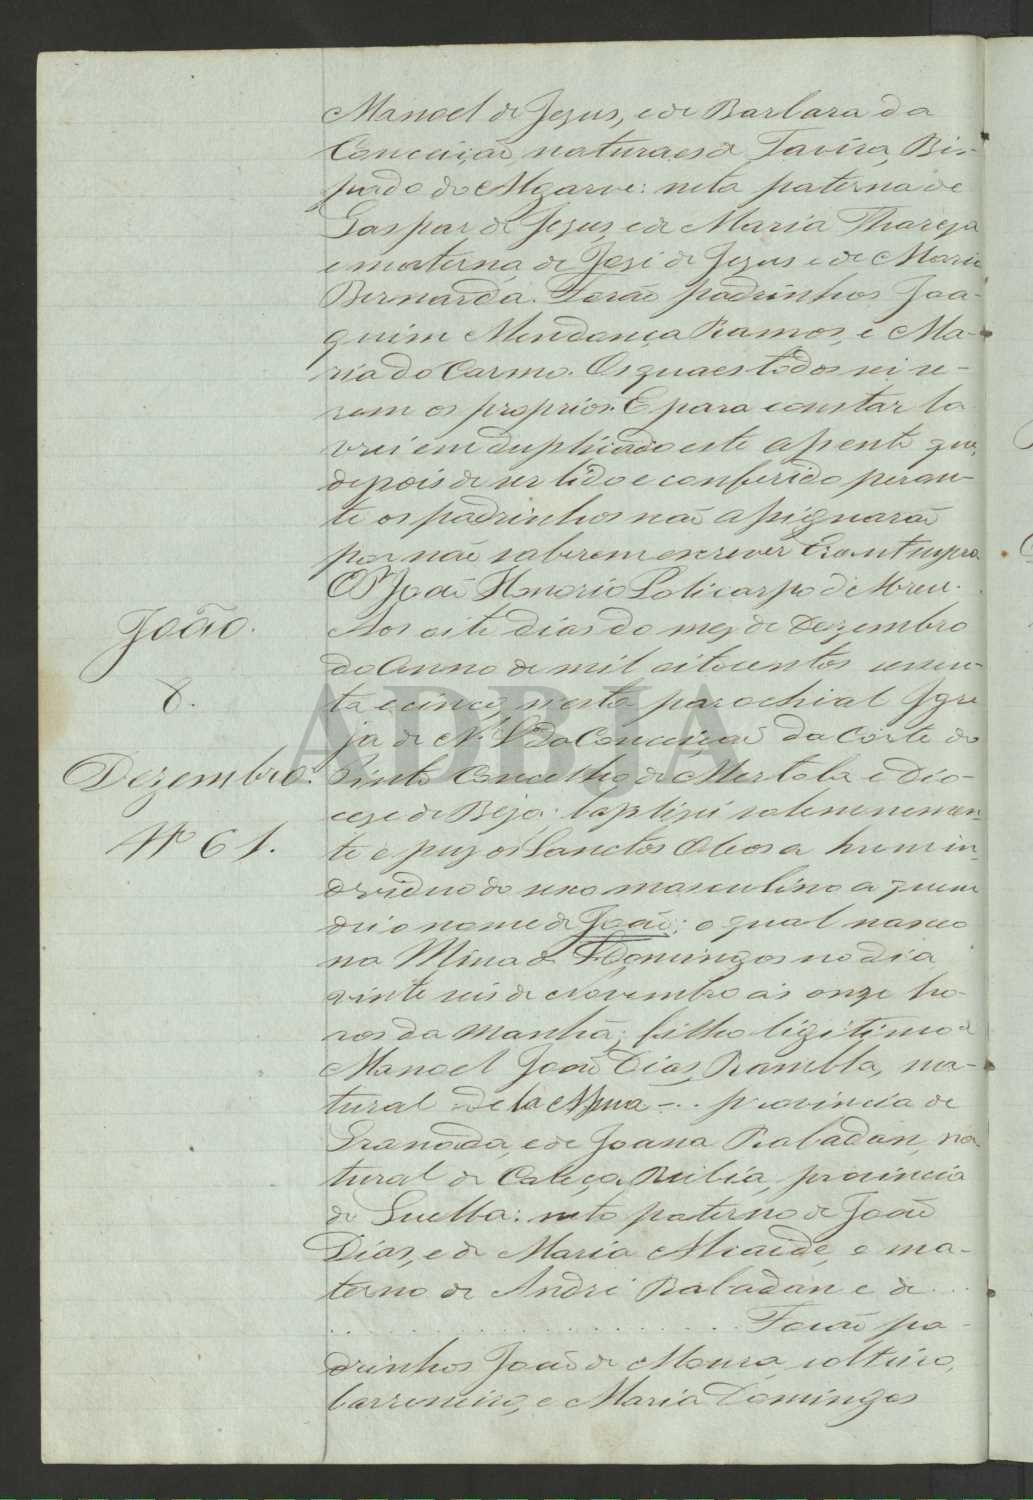 Manoel de Jezus, e de Barbara da
Conceição, naturaes de Tavira, Bis-
pado do Algarve: neta paterna de
Gaspar de Jezus, e de Maria Thareza
e materna de José de Jezus e de Maria
Bernarda. Forão padrinhos Joa-
quim Mendonça Ramos, e Ma-
ria do Carmo. Os quaes todos sei se-
rem os proprios. E para constar la
vrei em duplicado este assento que,
depois de ser lido e conferido peran-
te os padrinhos não assignarão
por não saberem escrever Era ut supra
O P. João Honorio Policarpo d'Abreu.
João.
8.
Dezembro.
Nº 61.
Aos oito dias do mez de Dezembro
do Anno de mil oitocentos sessen-
ta e cinco, nesta parochial Igre
ja de N. S. da Conceição da Corte do
Pinto Concelho de Mertola e Dio-
cese de Beja: baptizei solemnemen-
te e puz os Sanctos Oleos a hum in-
dividuo do sexo masculino a quem
dei o nome de João: o qual nasceo
na Mina de S. Domingos no dia
vinte seis de Novembro ás onze ho-
ras da manhã; filho ligitimo de
Manoel João Dias Rambla, na-
tural de la - . . provincia de
Granada, e de Joana Rabadan, na-
tural de Cabeça Rubia, provincia
de Guelba: neto paterno de João
Dias, e de Maria Alcaide, e ma-
terno de André Rabadan e de . . .
. . . . . . . . . . . . . . . . . Forão pa-
drinhos João de Moura, solteiro,
barreneiro, e Maria Domingos
ADBJA